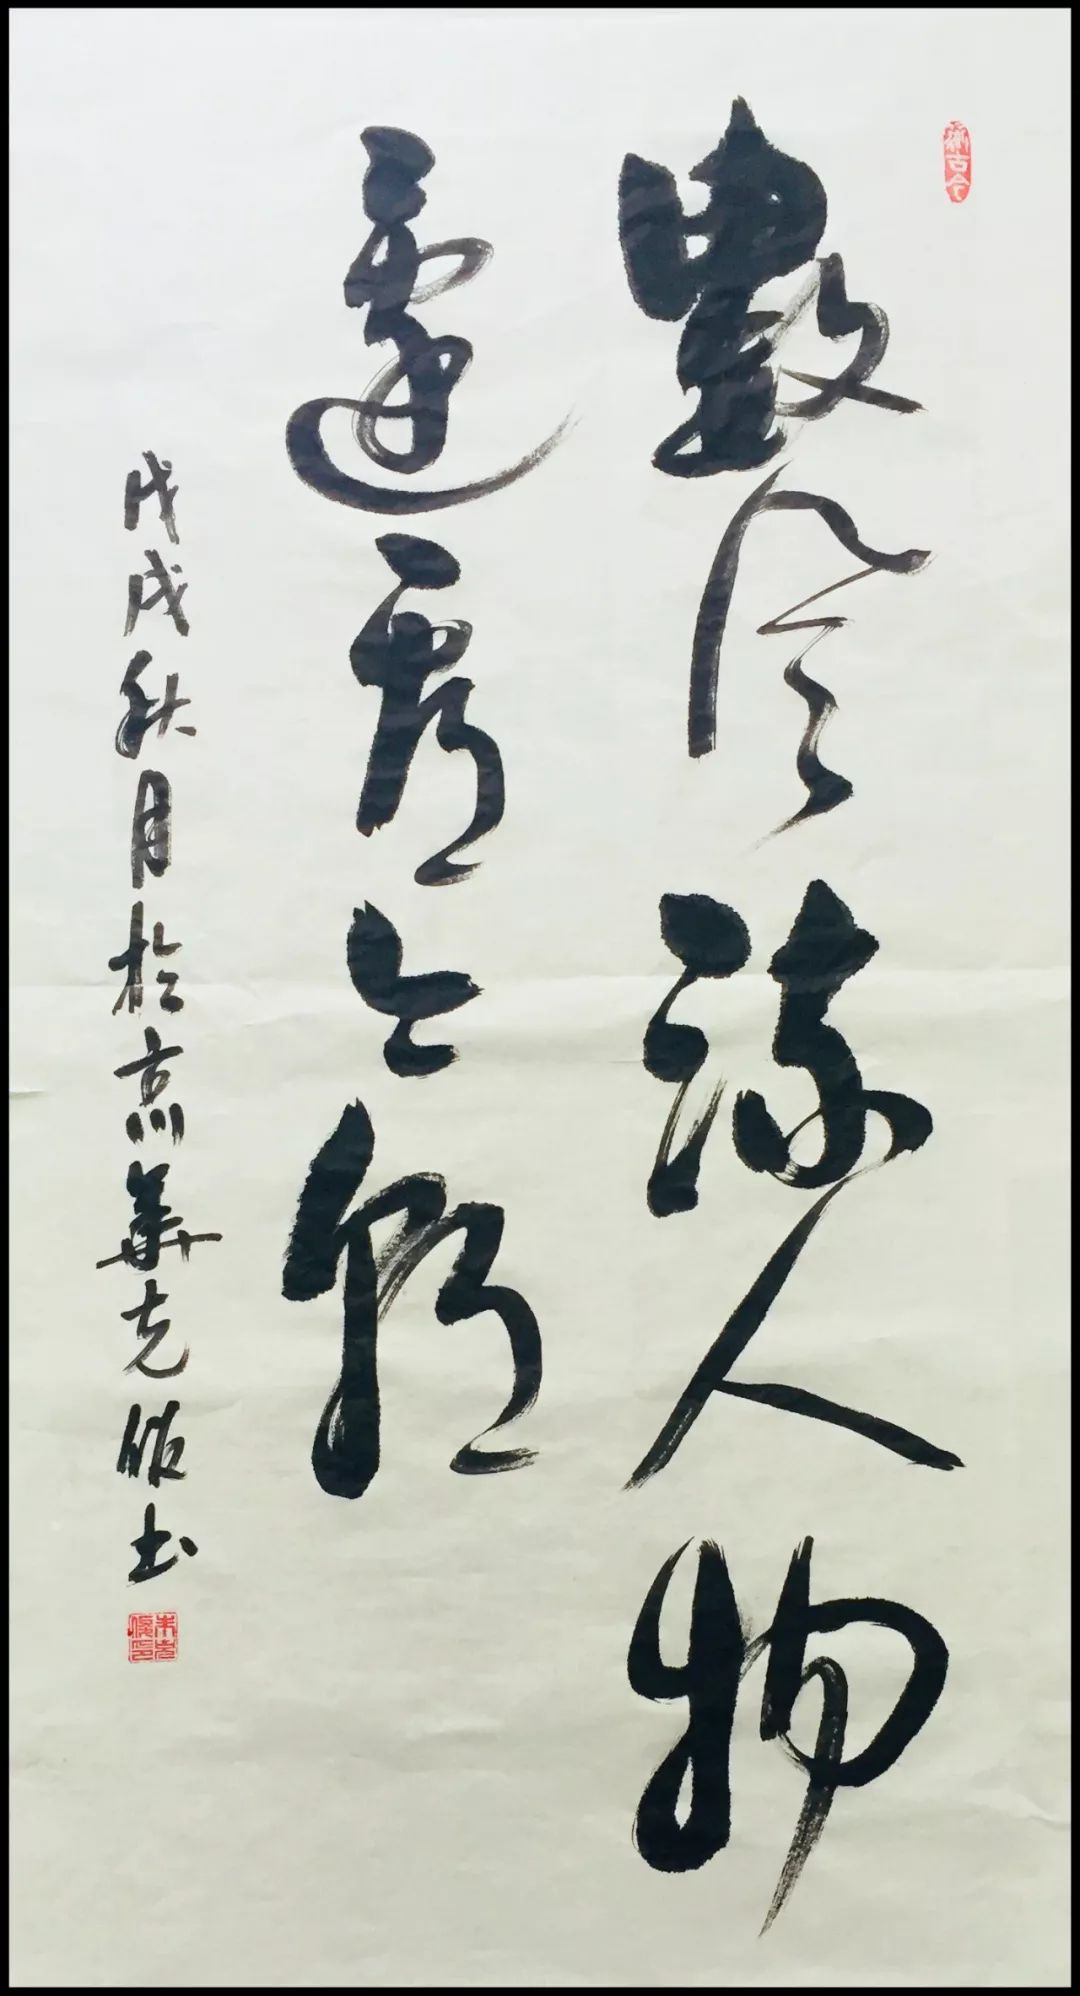 數風流人物
還看今朝
戊戌秋月於京華克俊书